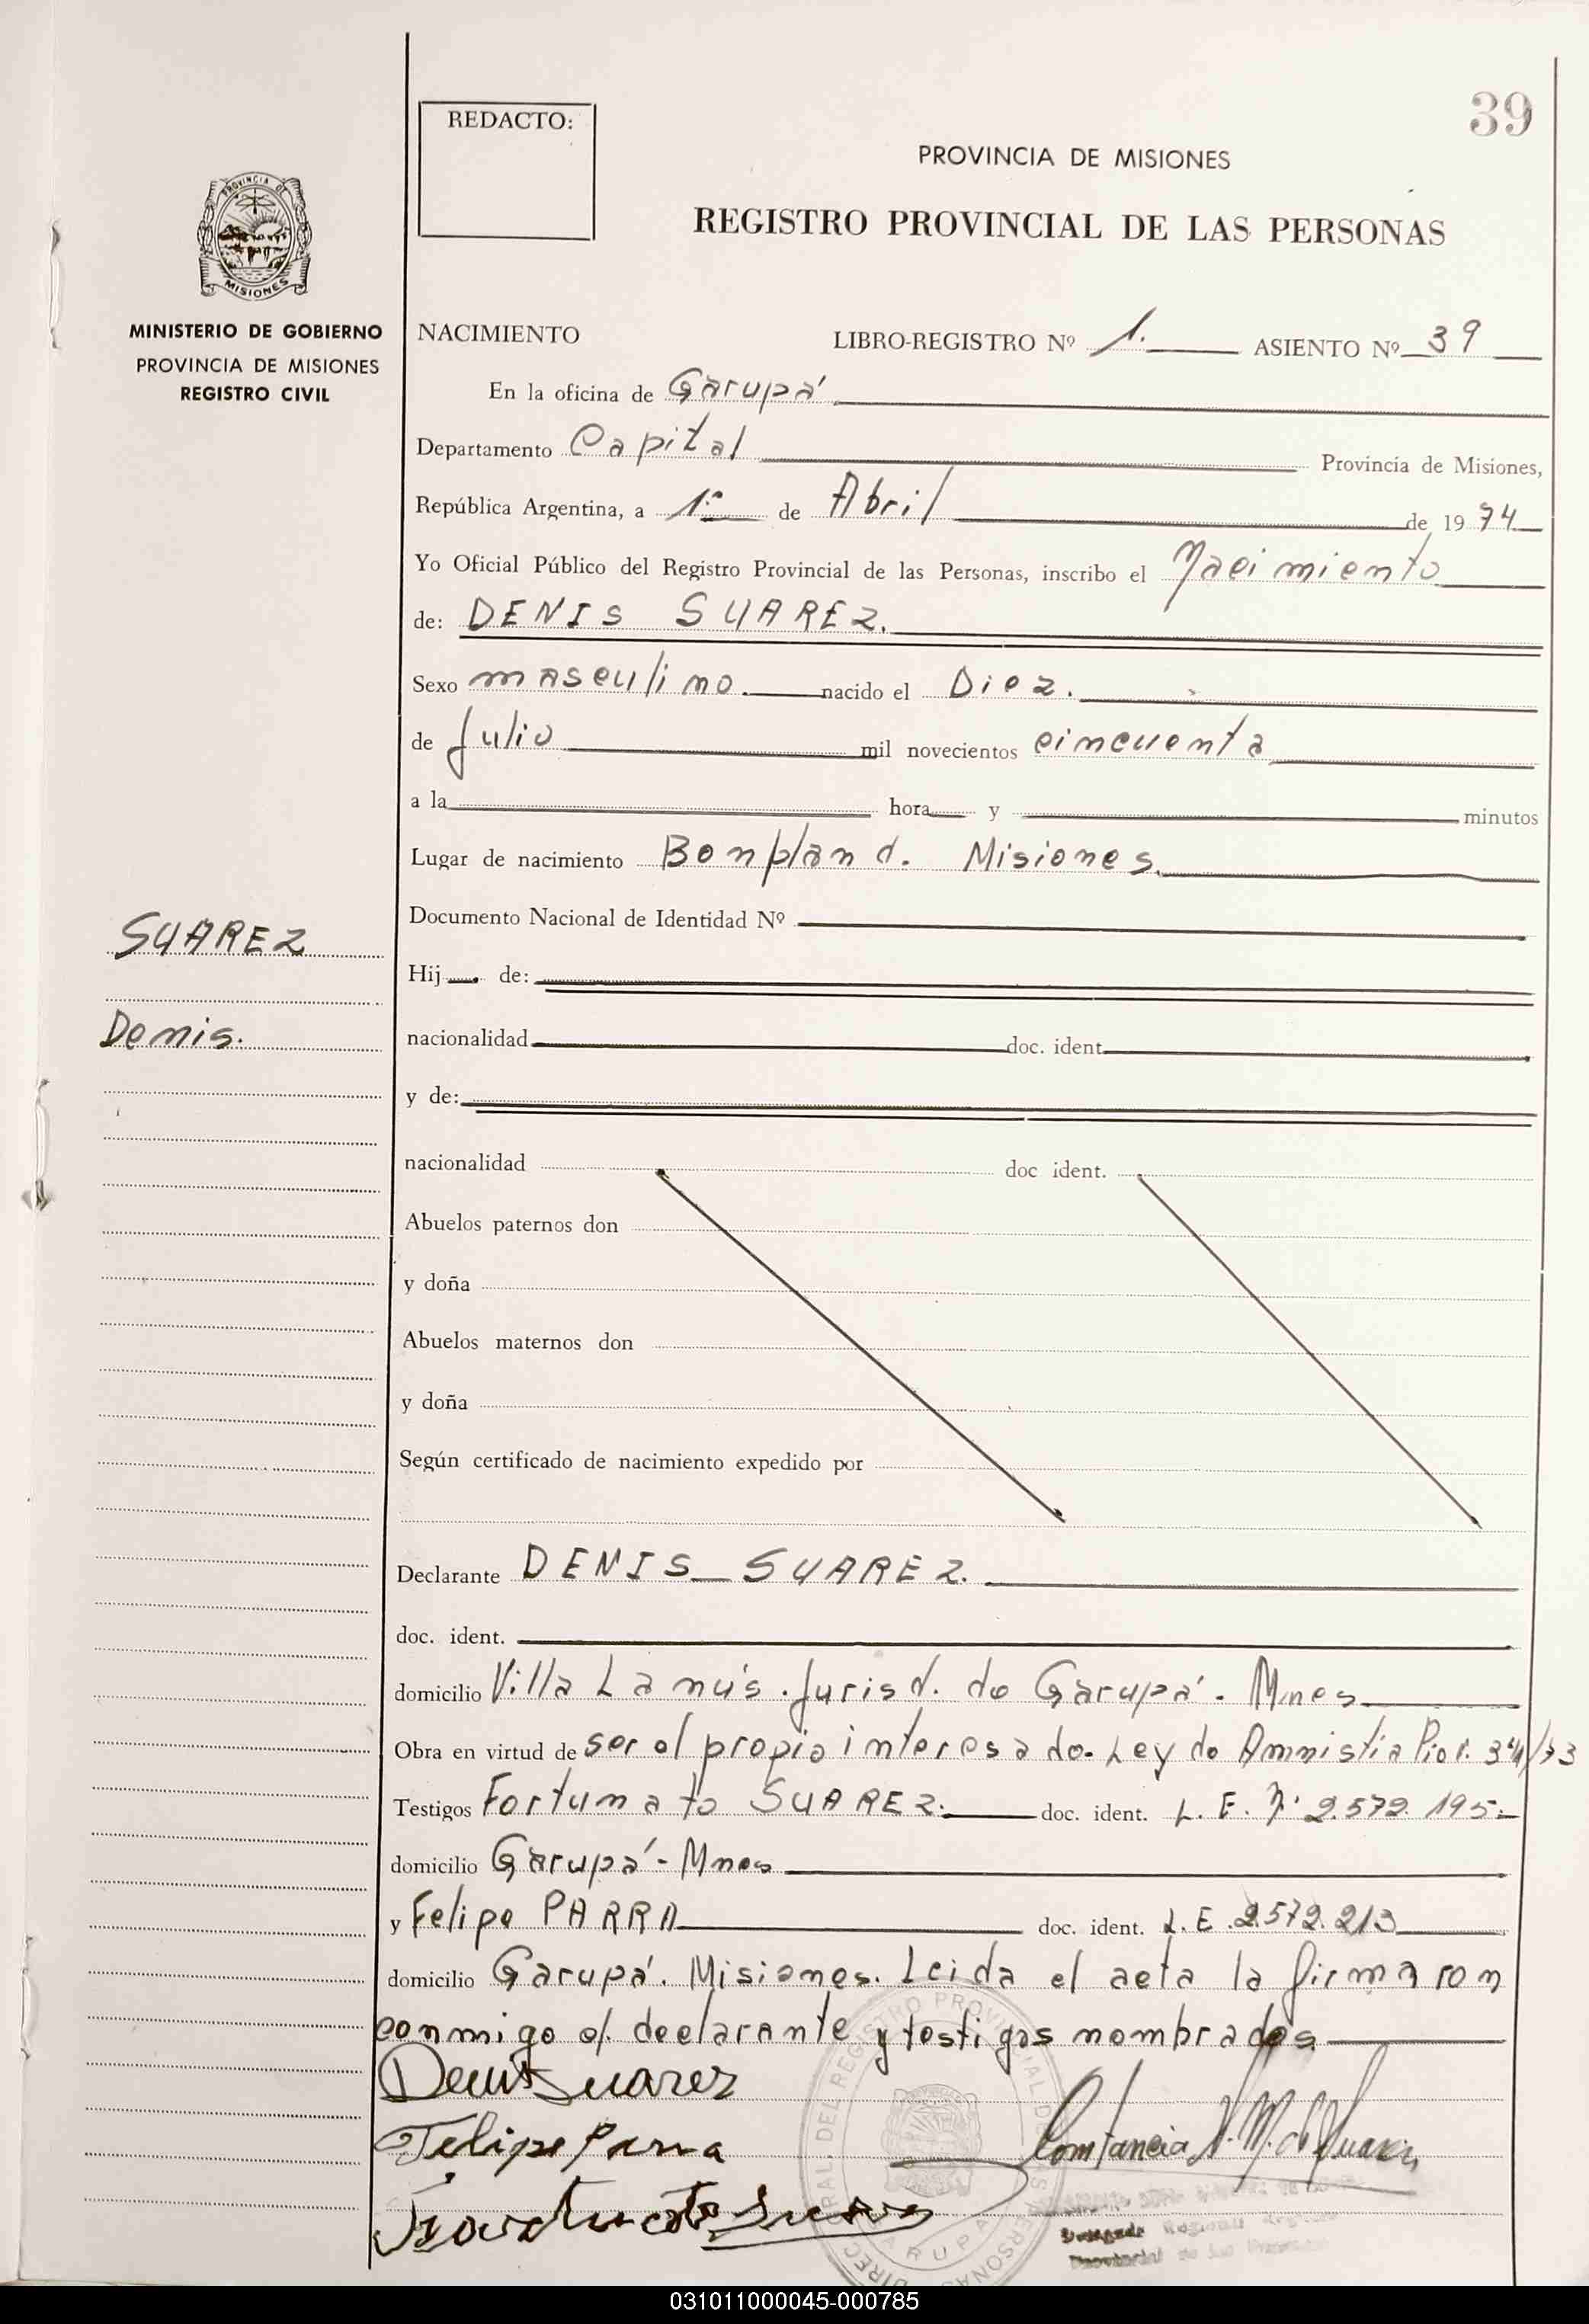 39
REDACTO:
PROVINCIA DE MISIONES
REGISTRO PROVINCIAL DE LAS PERSONAS
PROVINCIA DE
MISIONES
MINISTERIO DE GOBIERNO
PROVINCIA DE MISIONES
REGISTRO CIVIL
NACIMIENTO LIBRO-REGISTRO Nº 1. ASIENTO Nº 39
En la oficina de Garupá
Departamento Capital Provincia de Misiones,
República Argentina, a 1º de Abril de 1974
Yo Oficial Público del Registro Provincial de las Personas, inscribo el Nacimiento
de: DENIS SUAREZ.
Sexo masculino. nacido el Diez.
de Julio mil novecientos cincuenta
a la hora y minutos
Lugar de nacimiento Bonpland. Misiones.
Documento Nacional de Identidad Nº
SUAREZ
Hij de:
Denis.
nacionalidad doc. ident.
y de:
nacionalidad doc ident.
Abuelos paternos don
y doña
Abuelos maternos don
y doña
Según certificado de nacimiento expedido por
Declarante DENIS SUAREZ.
doc. ident.
domicilio Villa Lanús. Jurisd. de Garupá. Mnes
Obra en virtud de ser el propio interesado. Ley de Amnistia
Testigos Fortunato SUAREZ. doc. ident. L. E. Nº 2.572.195.
domicilio Garupá - Mnes
y Felipe PARRA doc. ident. L. E. 2.572.213
domicilio Garupá. Misiones. Leida el acta la firmaron
conmigo el declarante y testigos nombrados
Denis Suarez
Felipe Parra
Fortunato Suarez
031011000045-000785